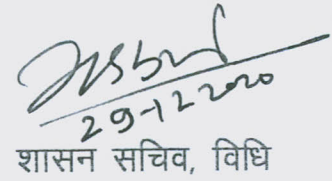 29-12-2020
शासन सचिव, विधि